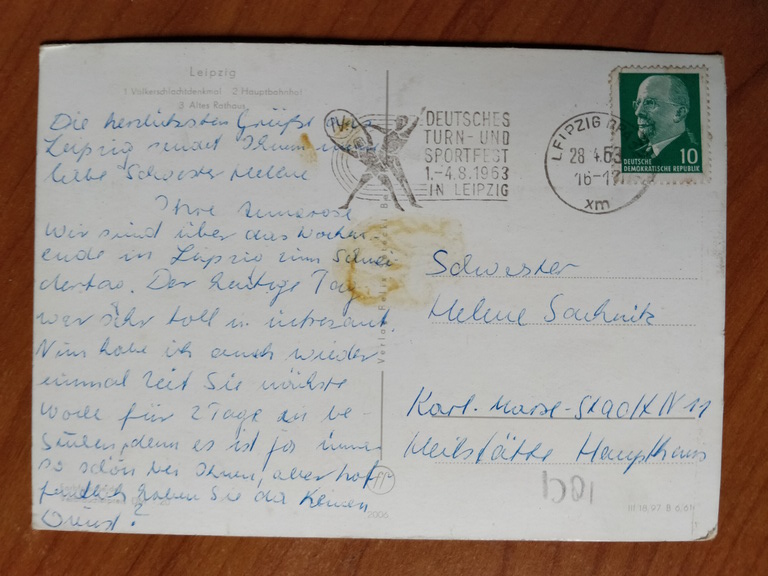 Leipzig
1 Völkerschlachtdenkmal 2 Hauptbahnhof
3 Altes Rathaus
Die herzlichsten Grüße aus
Leipzig sendet Ihnen
liebe Schwester Helene
Ihre Annerose
Wir sind über das Wochen-
ende in Leipzig zum Schnei
dertag. Der heutige Tag
war sehr toll u. intresant.
Nun habe ich auch wieder
einmal Zeit Sie nächste
Woche für 2 Tage zu be-
suchen, denn es ist ja immer
so schön bei Ihnen, aber hof
fentlich haben Sie da keinen
Dienst?
DEUTSCHES
TURN- UND
SPORTFEST
1.-4.8.1963
IN LEIPZIG
LEIPZIG
28.4.63
16-17
xm
DEUTSCHE
DEMOKRATISCHE REPUBLIK
10
Schwester
Helene Sachnik
Karl-Marx-Stadt N 11
Heilstätte Haupthaus
III 18 97 B 6/61